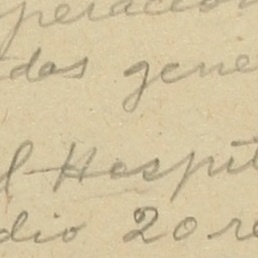 peracion
das gene
l Hospit
dio 20 re